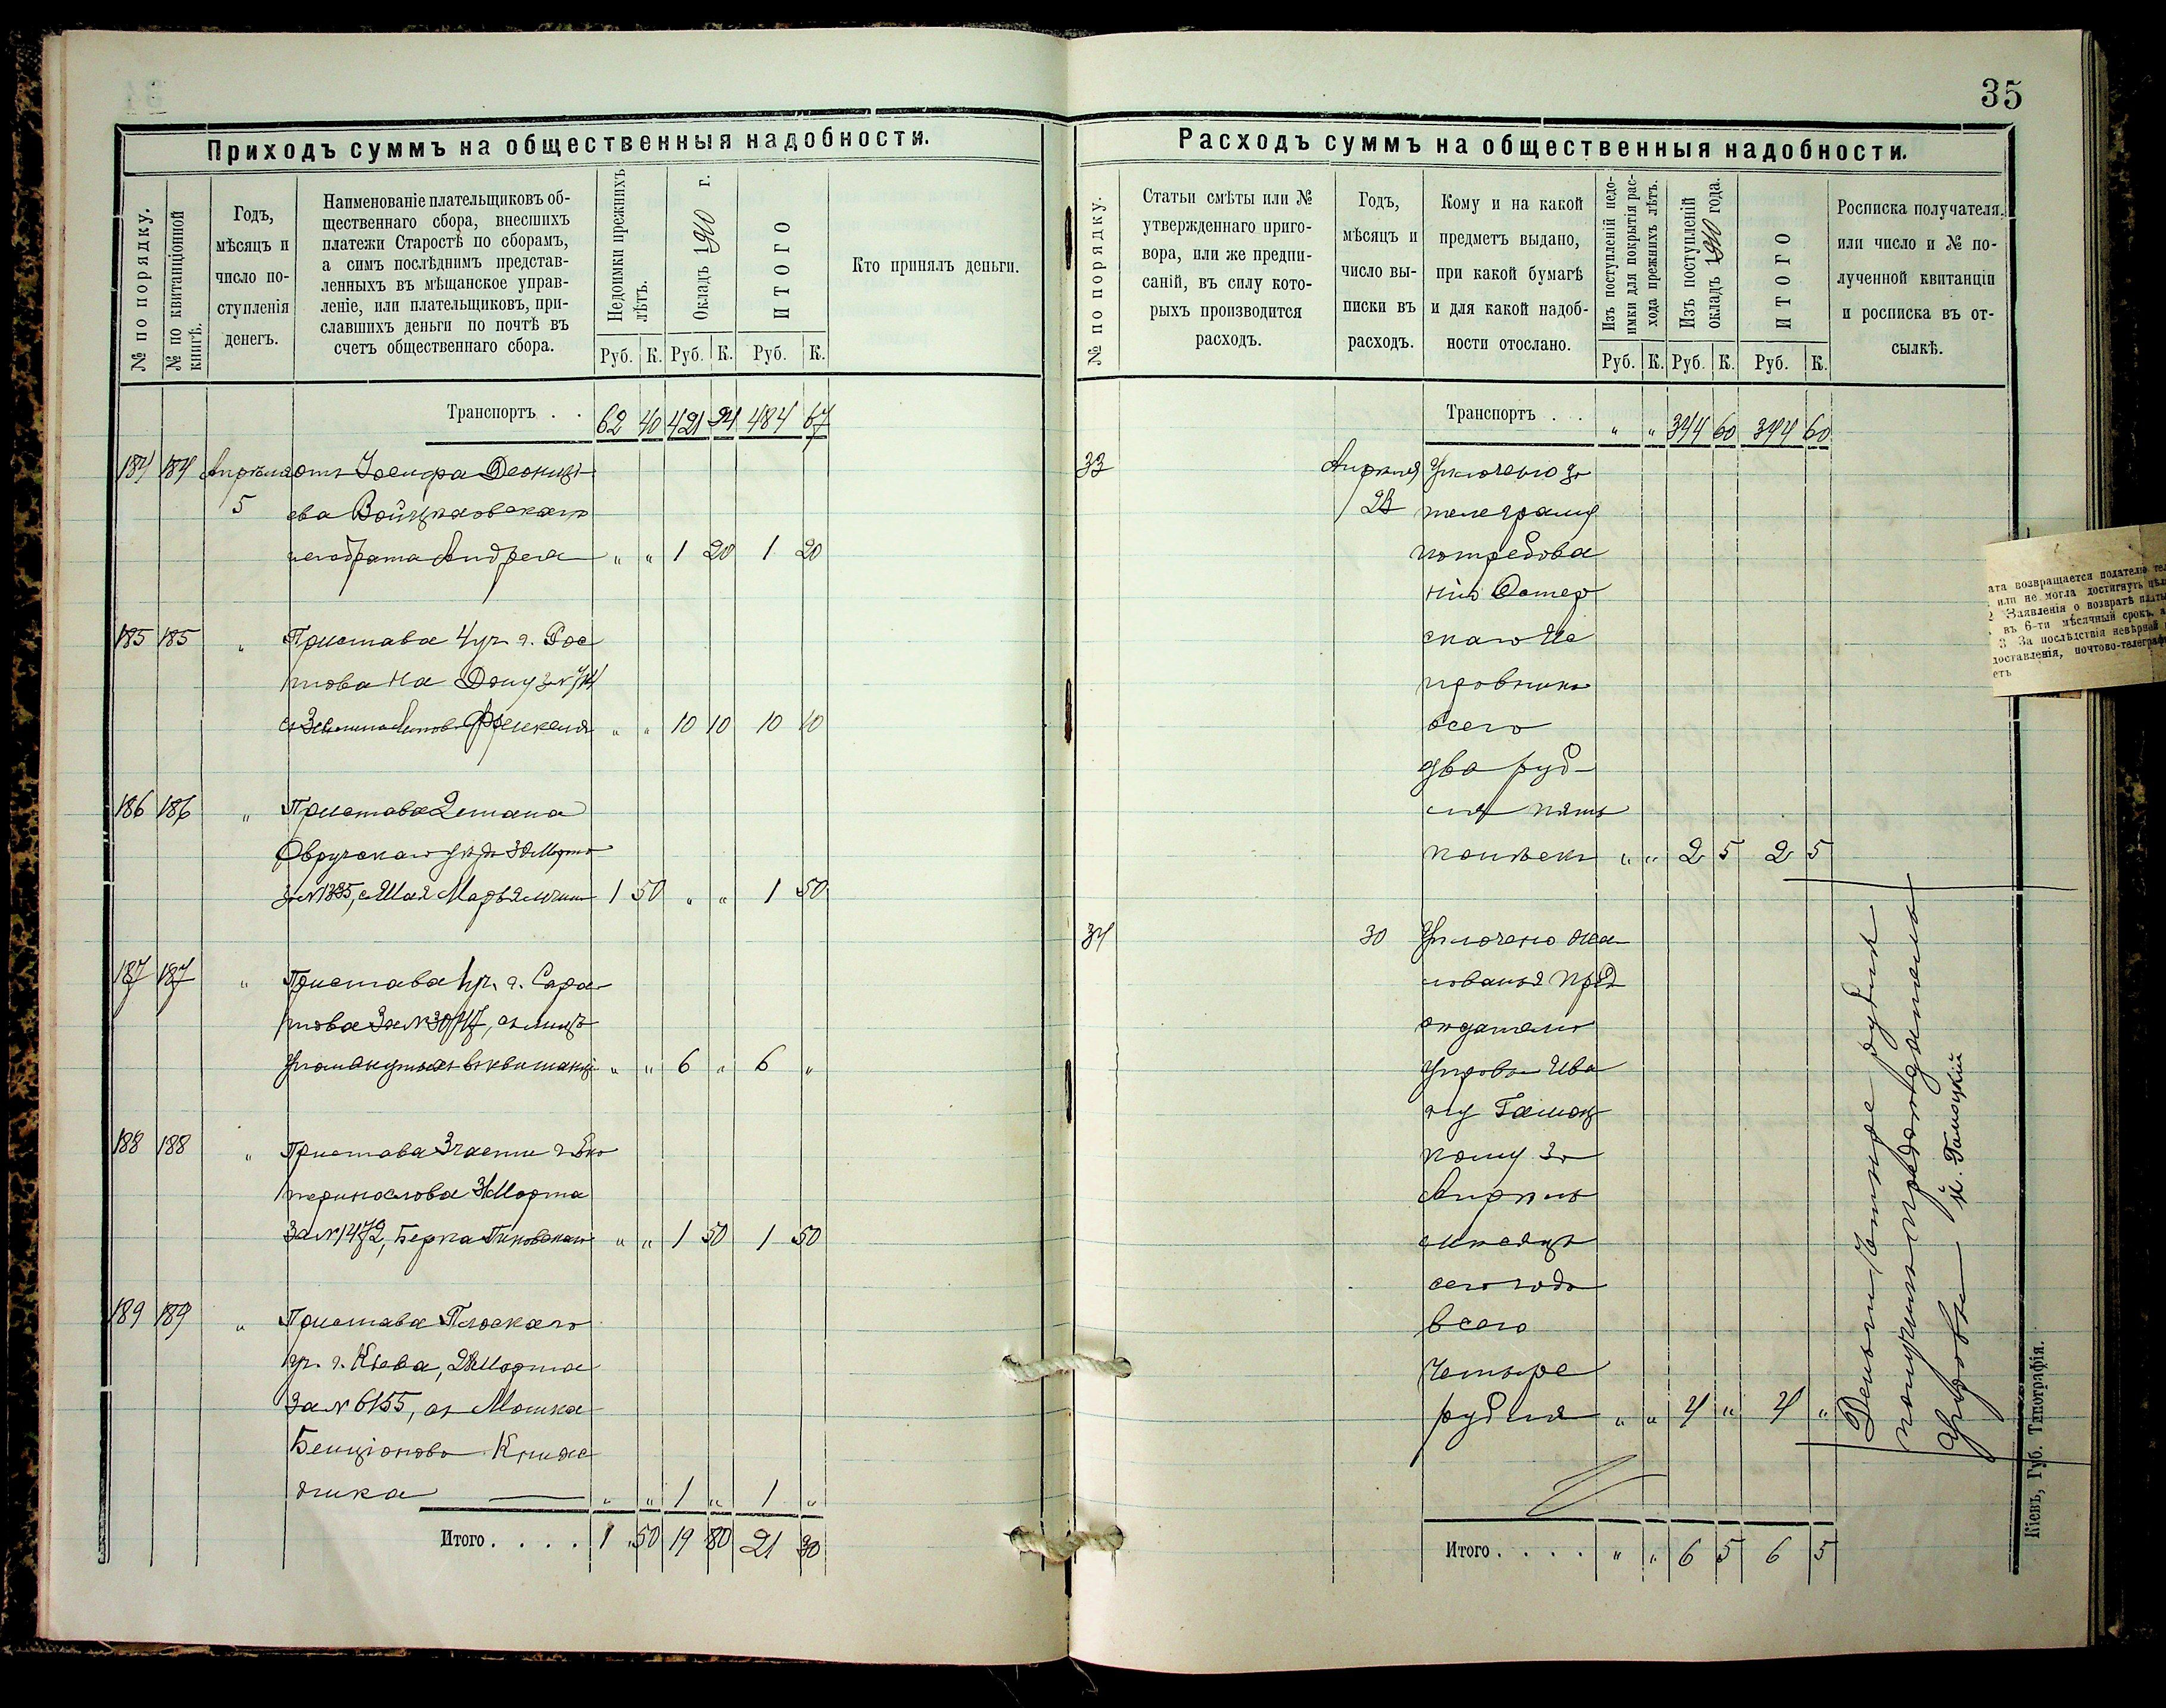 35
Приходъ суммъ на общественныя надобности.
№ по порядку.
№ по квитанціонной книгѣ.
Годъ,
мѣсяцъ и
число по-
ступленія
денегъ.
Наименованіе плательщиковъ об-
щественнаго сбора, внесшихъ
платежи Старостѣ по сборамъ,
а симъ послѣднимъ представ-
ленныхъ въ мѣщанское управ-
леніе, или плательщиковъ, при-
славшихъ деньги по почтѣ въ
счетъ общественнаго сбора.
Недоимки прежнихъ
лѣтъ.
Окладъ 1910 г.
ИТОГО
Кто принялъ деньги.
Руб. К. Руб. К. Руб. К.
Транспортъ . . 62 40 421 94 484 67
184 184 Апрѣля отъ Іосифа
5 ева Войцеховскаго
брата Андрея " " 1 20 1 20
185 185 " Пристава 4 уч. г. Рос
това на Дону
Френкеля " " 10 10 10 10
186 186 " Пристава 2 стана
Овручскаго у. 30 Марта
за №1335, съ Шая 1 50 " " 1 50
187 187 " Пристава 1 уч. г. Сара
това За №
" " 6 " 6 "
188 188 " Пристава 3 части г. Ека
теринослова 31 Марта
За №1472, Берка " " 1 50 1 50
189 189 " Пристава Плоскаго
уч. г. Кіева, 28 Марта
За № 6155, съ Мошка
Бенціонова Книж
ника — " " 1 " 1 "
Итого. . . . 1 50 19 80 21 30
Расходъ суммъ на общественныя надобности.
№ по порядку.
Статьи смѣты или №
утвержденнаго приго-
вора, или же предпи-
саній, въ силу кото-
рыхъ производится
расходъ.
Годъ,
мѣсяцъ и
число вы-
писки въ
расходъ.
Кому и на какой
предметъ выдано,
при какой бумагѣ
и для какой надоб-
ности отослано.
Изъ поступленій недо-
имки для покрытія рас-
хода прежнихъ лѣтъ.
Изъ поступленій
окладъ 1910 года.
ИТОГО
Росписка получателя.
или число и № по-
лученной квитанціи
и росписка въ от-
сылкѣ.
Руб. К. Руб. К. Руб. К.
Транспортъ . . " " 344 60 344 60
33 Апрѣля Уплочено за
23 телеграму
потребова
нію Остер
скаго Ис
правника
всего
два руб-
ля пять
копѣекъ " " 2 5 2 5
34 30 Уплочено жа-
лованья пред
сѣдателю
Управы Ива
ну Галиц
кому за
Апрѣль
мѣсяцъ
сего года
всего
четыре
рубля " " 4 " 4 "
Итого. . . . " " 6 5 6 5
Деньги четыре рубля
получилъ предсѣдатель
Управы
Кіевъ, Губ. Типографія.
ата возвращается подателю тел
или не могла достигнуть
2 Заявленія о возвратѣ платы
въ 6-ти мѣсячный срокъ,
3 За послѣдствія невѣрной
доставленія, почтово-телеграф
етъ